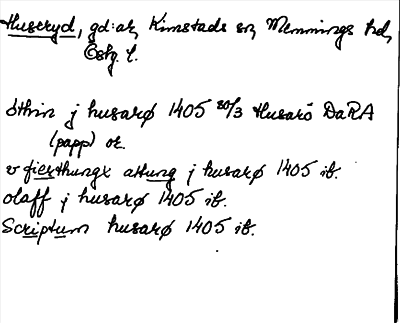 Huseryd, gd:ar, Kimstads sn, Memmings hd,
Östg. l.
Sthin j husarø 1405 30/3 Husarö DaRA
(papp) or.
v fierthungx attung j husarø 1405 ib.
olaff j husarø 1405 ib.
Scriptum husarø 1405 ib.